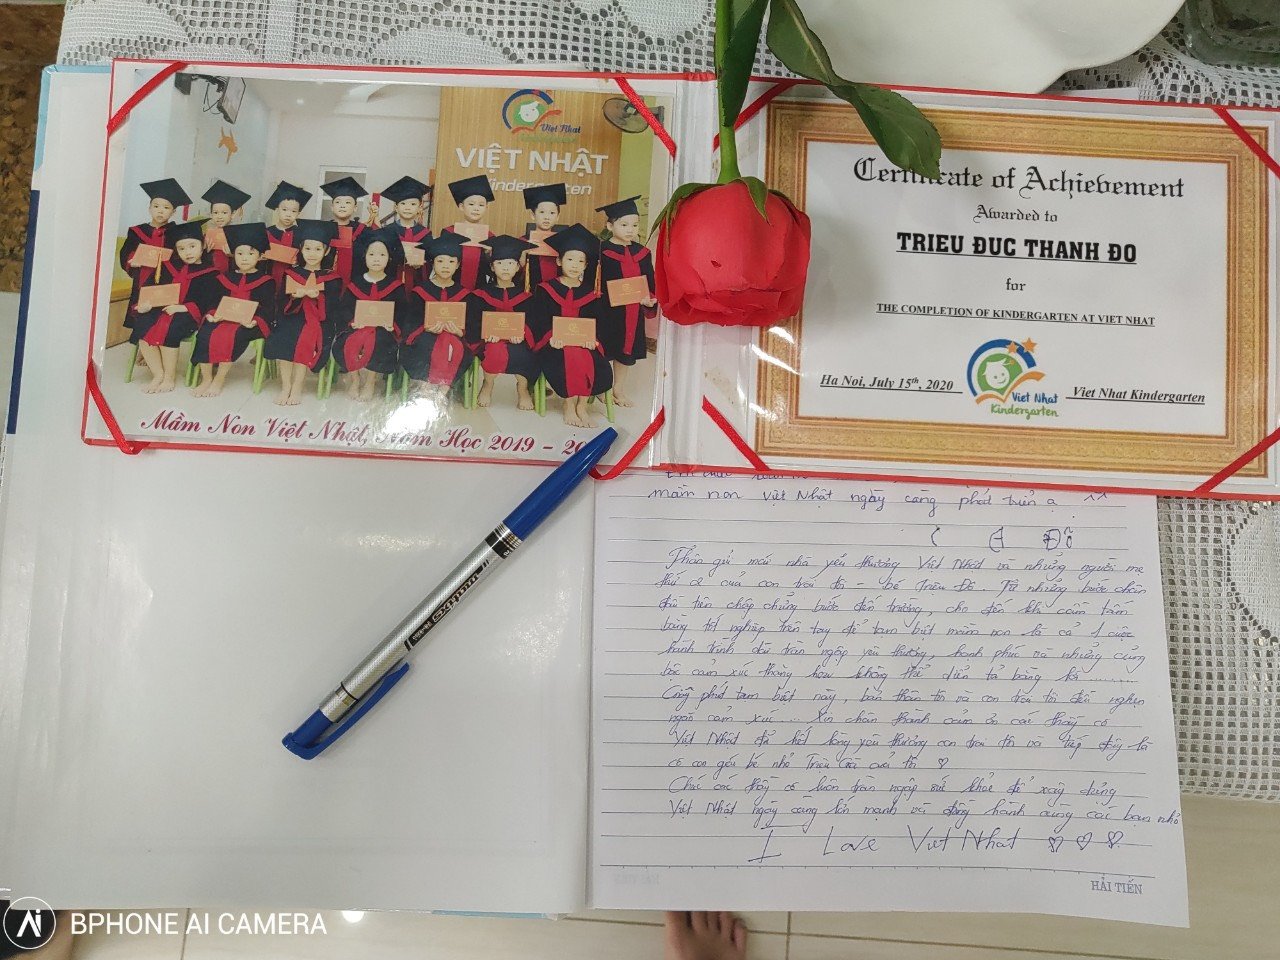 Việt Nhật
VIỆT NHẬT
Kindergarten
Mầm Non Việt Nhật, Năm Học 2019 - 20
Certificate of Achievement
Awarded to
TRIEU ĐUC THANH ĐO
for
THE COMPLETION OF KINDERGARTEN AT VIET NHAT
Ha Noi, July 15th, 2020
Viet Nhat
Kindergarten
Viet Nhat Kindergarten
mầm non Việt Nhật ngày càng phát triển ạ ^^
Thân gửi mái nhà yêu thương Việt Nhật và những người mẹ
thứ 2 của con trai tôi - bé Triệu Đô. Từ những bước chân
đầu tiên chập chững bước đến trường, cho đến khi cầm tấm
bằng tốt nghiệp trên tay để tạm biệt mầm non là cả 1 cuộc
hành trình dài tràn ngập yêu thương, hạnh phúc và những cung
bậc cảm xúc thăng hoa không thể diễn tả bằng lời .........
Giây phút tạm biệt này, bản thân tôi và con trai tôi đều nghẹn
ngào cảm xúc ... Xin chân thành cảm ơn các thầy cô
Việt Nhật đã hết lòng yêu thương con trai tôi và tiếp đây là
cô con gái bé nhỏ Triệu của tôi ♡
Chúc các thầy cô luôn tràn ngập sức khoẻ để xây dựng
Việt Nhật ngày càng lớn mạnh và đồng hành cùng các bạn nhỏ
I Love Viet Nhat ♡ ♡ ♡
HẢI TIẾN
BPHONE AI CAMERA